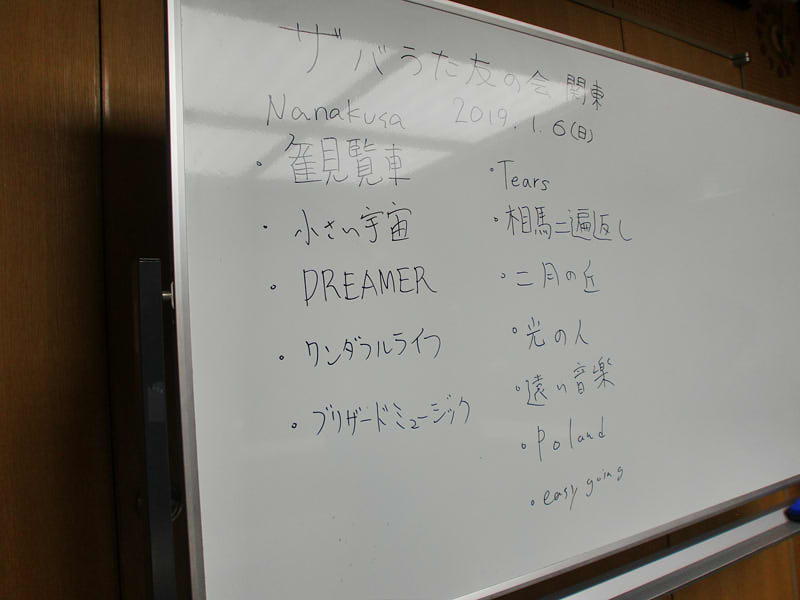 ザバうた友の会 関東
Nanakusa 2019.1.6(日)
・観覧車
・小さい宇宙
・DREAMER
・ワンダフルライフ
・ブリザードミュージック
・Tears
・相馬二遍返し
・二月の丘
・光の人
・遠い音楽
・Poland
・easy going